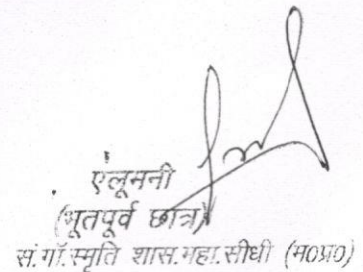 एलूमनी
(भूतपूर्व छात्र)
सं.गाॅ.स्मृति शास.महा.सीधी (म0प्र0)